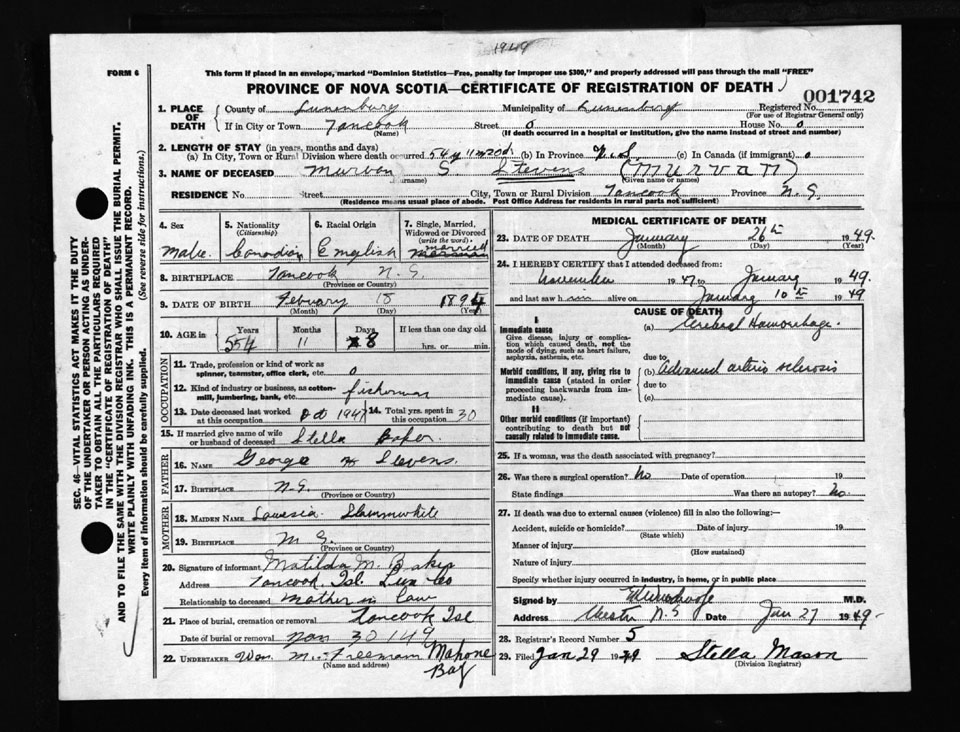 1949
FORM 6
This form if placed in an envelope, marked "Dominion Statistics—Free, penalty for improper use $300," and properly addressed will pass through the mail "FREE"
PROVINCE OF NOVA SCOTIA—CERTIFICATE OF REGISTRATION OF DEATH
001742
1. PLACE OF DEATH
County of Lunenburg Municipality of Lunenburg Registered No.
(For use of Registrar General only)
If in City or Town Tancook Street 0 House No. 0
(Name) (If death occurred in a hospital or institution, give the name instead of street and number)
2. LENGTH OF STAY (in years, months and days)
(a) In City, Town or Rural Division where death occurred 54 y 11 m 20 d. (b) In Province N.S (c) In Canada (if immigrant) 0
3. NAME OF DECEASED Murvon S. Stevens (Murvan)
(Surname) (Given name or names)
RESIDENCE No. Street City, Town or Rural Division Tancook Province N.S.
(Residence means usual place of abode. Post Office Address for residents in rural parts not sufficient)
4. Sex
Male
5. Nationality
(Citizenship)
Canadian
6. Racial Origin
English
7. Single, Married, Widowed or Divorced
(write the word)
married
8. BIRTHPLACE Tancook N.S.
(Province or Country)
9. DATE OF BIRTH Febuary 18 1894
(Month) (Day) (Year)
10. AGE in
Years Months Days If less than one day old
554 11 8 hrs. or min.
OCCUPATION
11. Trade, profession or kind of work as
spinner, teamster, office clerk, etc. 0
12. Kind of industry or business, as cotton-
mill, lumbering, bank, etc. fisherman
13. Date deceased last worked at this occupation Oct 1947 14. Total yrs. spent in this occupation 30
15. If married give name of wife or husband of deceased Stella Baker
FATHER
16. NAME George H Stevens.
17. BIRTHPLACE N.S.
(Province or Country)
MOTHER
18. MAIDEN NAME Slaunwhite
19. BIRTHPLACE N.S.
(Province or Country)
20. Signature of informant Matilda M. Baker
Address Tancook Isl. Lun Co
Relationship to deceased mother in law
21. Place of burial, cremation or removal Tancook Isl
Date of burial or removal 30 149
22. UNDERTAKER Wm. M. Freeman Mahone Bay
(Name and address)
MEDICAL CERTIFICATE OF DEATH
23. DATE OF DEATH January 26th 1949.
(Month) (Day) (Year)
24. I HEREBY CERTIFY that I attended deceased from:
November 1947 to January 1949.
and last saw him alive on January 10th 1949
CAUSE OF DEATH
I
Immediate cause
Give disease, injury or complica-
tion which caused death, not the
mode of dying, such as heart failure,
asphyxia, asthenia, etc.
(a) Cerebral Haemorrhage.
due to
Morbid conditions, if any, giving rise to
immediate cause (stated in order
proceeding backwards from im-
mediate cause).
(b) Advanced arterio sclerosis
due to
(c)
II
Other morbid conditions (if important)
contributing to death but not
causally related to immediate cause.
25. If a woman, was the death associated with pregnancy?
26. Was there a surgical operation? No Date of operation 19
State findings Was there an autopsy? No.
27. If death was due to external causes (violence) fill in also the following:—
Accident, suicide or homicide? Date of injury 19
(State which)
Manner of injury
(How sustained)
Nature of injury
Specify whether injury occurred in industry, in home, or in public place
Signed by M.D.
Address Chester N.S Date Jan 27 1949-
28. Registrar's Record Number 5
29. Filed Jan 29 1949 Stella Mason
(Division Registrar)
SEC. 46—VITAL STATISTICS ACT MAKES IT THE DUTY
OF THE UNDERTAKER OR PERSON ACTING AS UNDER-
TAKER TO OBTAIN ALL THE PARTICULARS REQUIRED
IN THE "CERTIFICATE OF REGISTRATION OF DEATH"
AND TO FILE THE SAME WITH THE DIVISION REGISTRAR WHO SHALL ISSUE THE BURIAL PERMIT.
WRITE PLAINLY WITH UNFADING INK. THIS IS A PERMANENT RECORD.
Every item of information should be carefully supplied. (See reverse side for instructions.)